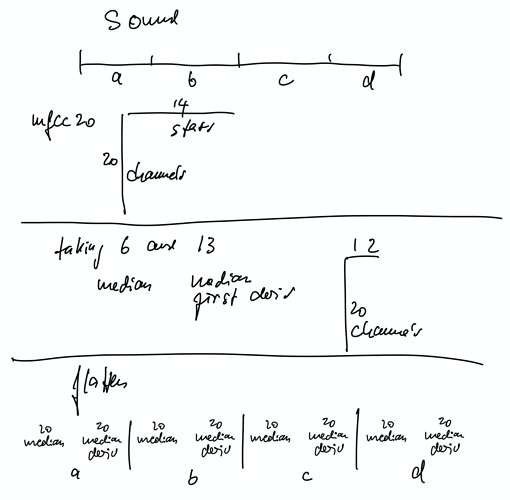 Sound
a b c d
mfcc 20
14
stats
20
channels
taking 6 and 13
median
median
first deriv
1 2
20
channels
flatten
20 median 20 median deriv 20 median 20 median deriv 20 median 20 median deriv 20 median 20 median deriv
a b c d